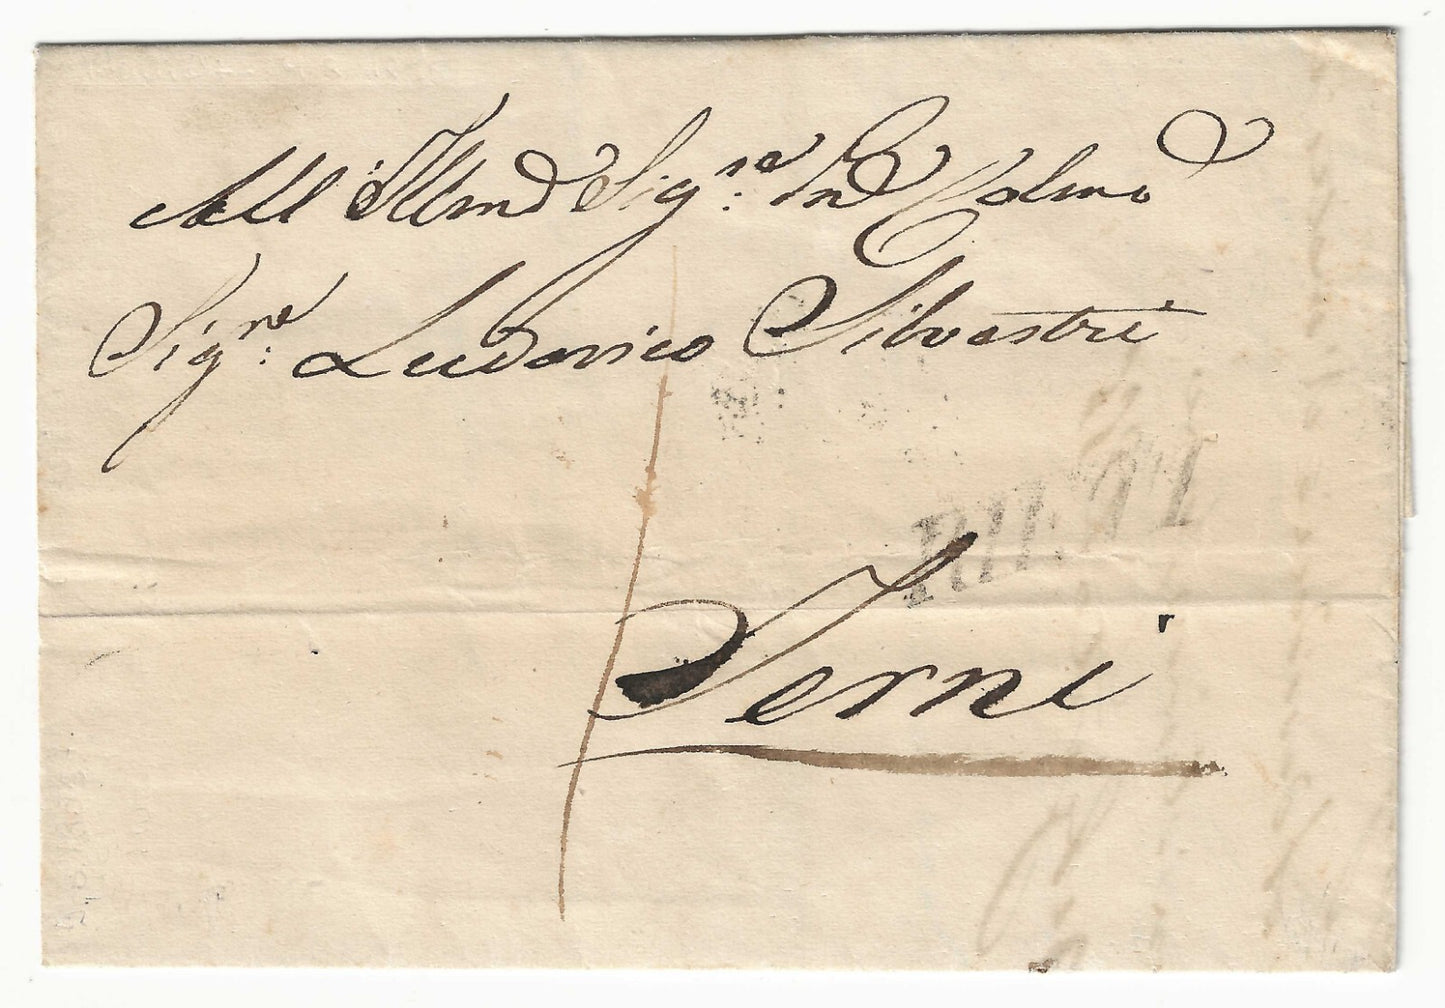 All' Illmo Sigre: Pne Colmo
Sigre: Ludovico Silvestri
RIETI
Terni